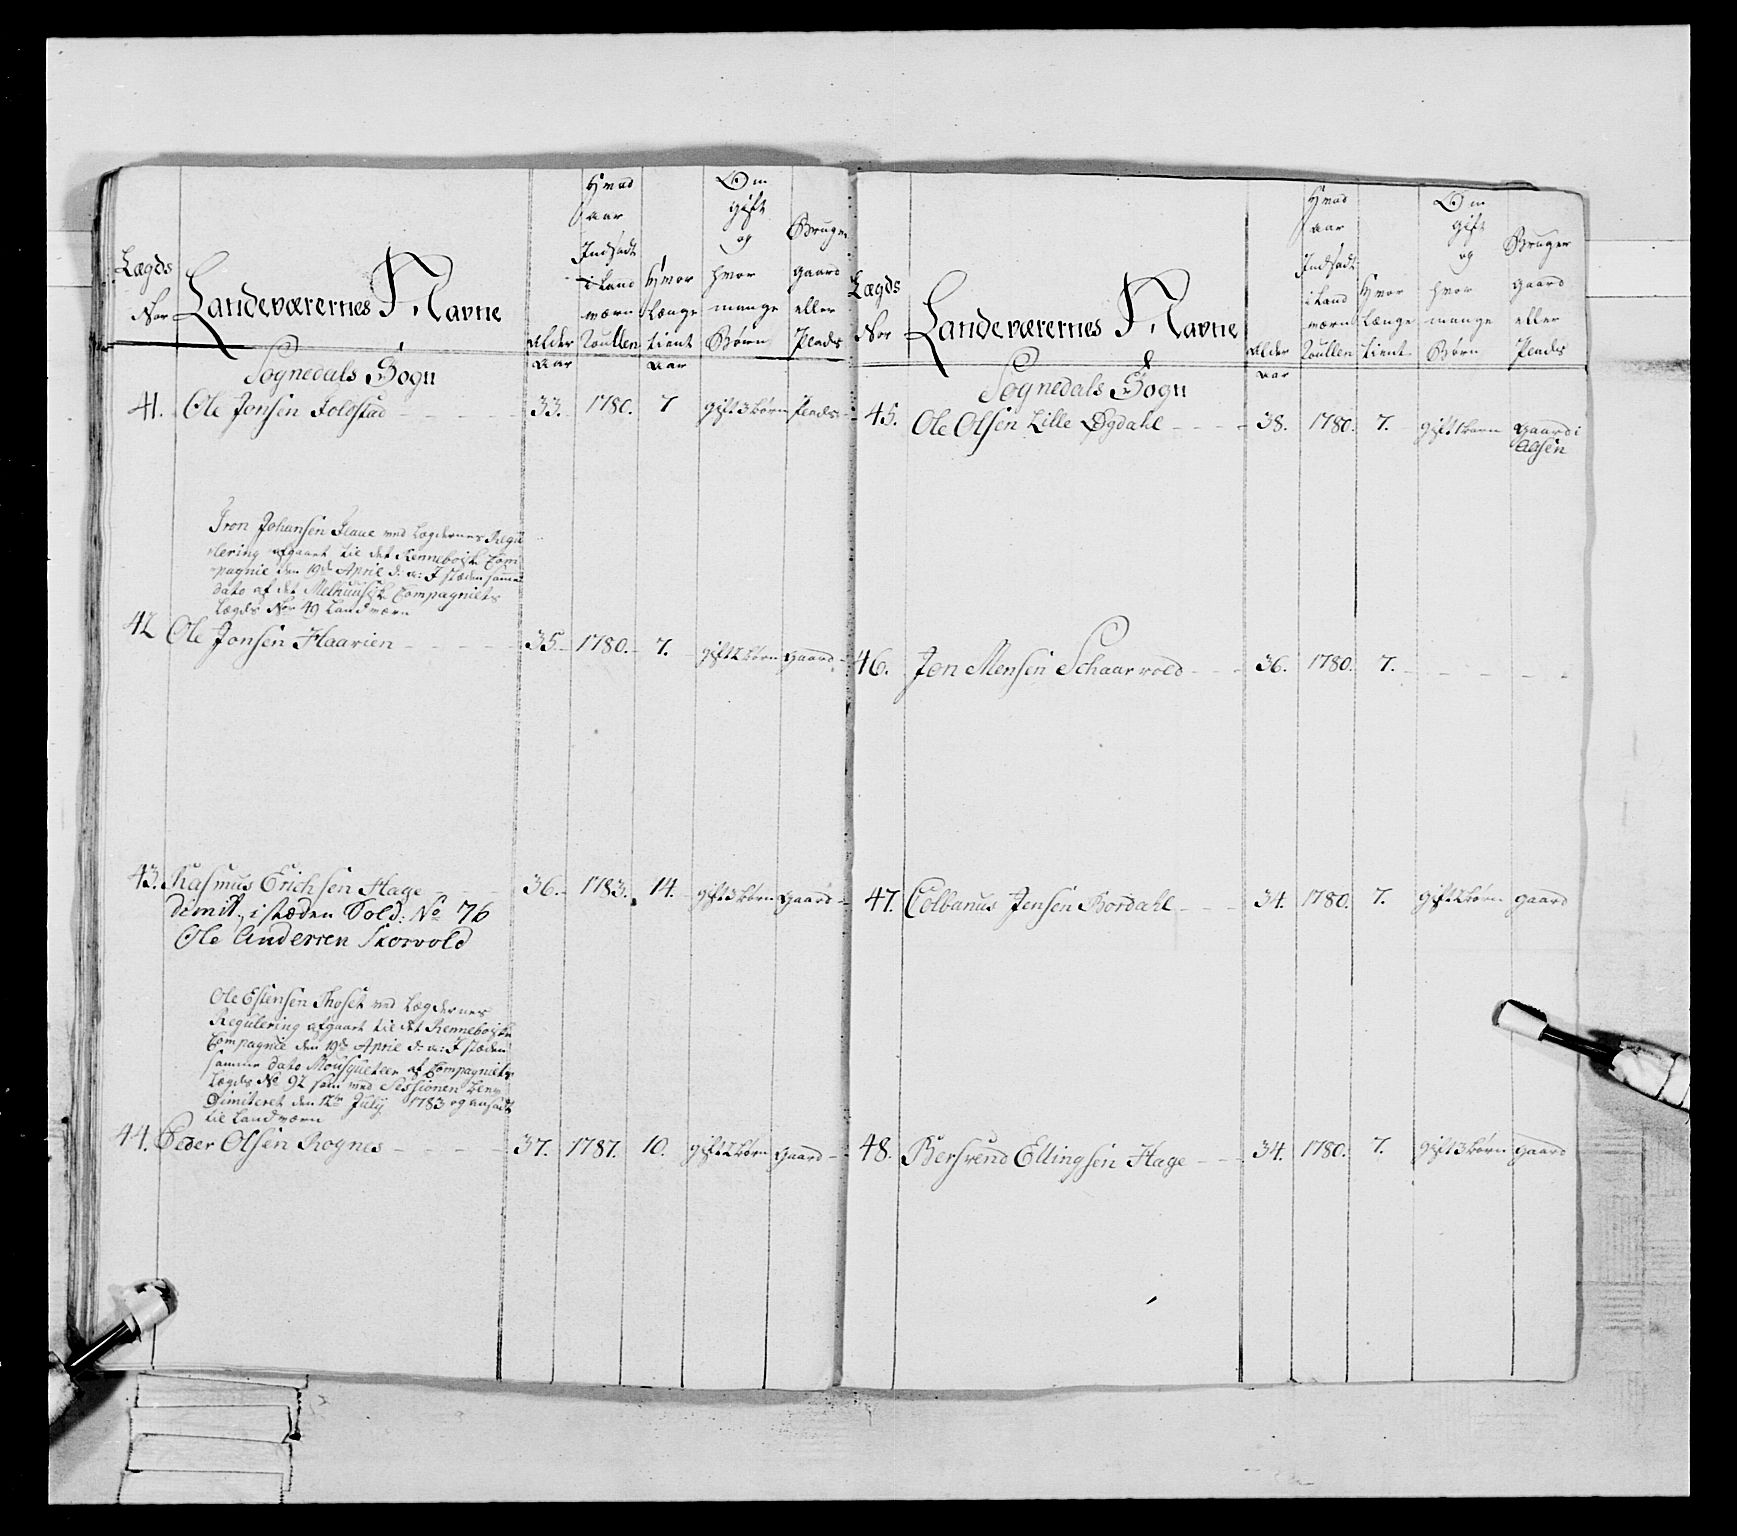 Lægds
No:
Landeværernes Navne
Alder
Hvad
aar
Indsadt
i Land
værn
Roullen
Hvor
Længe
tient
Om
gift
og
hvor
mange
Børn
Bruger
gaard
eller
Plads
Sognedals Sogn
aar
aar
41. Ole Jonsen Folstad 33. 1780. 7 gift 3 børn Plads
Iron Johansen Flaae ved Lægdernes Regu
lering afgaaet til det Rennebojske Com
pagnie den 19de April d: a: I stæden samme
dato af det Melhuusiske Compagniets
Lægds No 49 Landværn
42 Ole Jonsen Haarien 35. 1780. 7. gift 2 børn gaard
43. Rasmus Erichsen Hage 36. 1783. 14. gift 3 børn gaard
dimit., i stæden Sold: No 76
Ole Andersen Skorvold
Ole Estensen Thoset ved Lægdernes
Regulering afgaaet til det Rennebojske
Compagnie den 19de April d: a: I stæden
samme dato Mousqueteer af Compagniets
Lægds No 92 som ved Sessionen blev
Dimiteret den 12te July 1783 og ansadt
til Landværn
44. Peder Olsen Rognes 37. 1787. 10. gift 2 børn gaard
Lægds
No:
Landeværernes Navne
Alder
Hvad
aar
Indsadt
i Land
værn
Roullen
Hvor
Længe
tient
Om
gift
og
hvor
mange
Børn
Bruger
gaard
eller
Plads
Sognedals Sogn
aar
45. Ole Olsen Lille Øgdahl 38. 1780. 7. gift 1 barn gaard i
Aasen
46. Jon Monsen Schaarvold 36. 1780. 7.
47. Colbanus Jensen Bordahl 34. 1780. 7. gift 2 børn gaard
48. Bersvend Ellingsen Hage 34. 1780. 7. gift 3 børn gaard